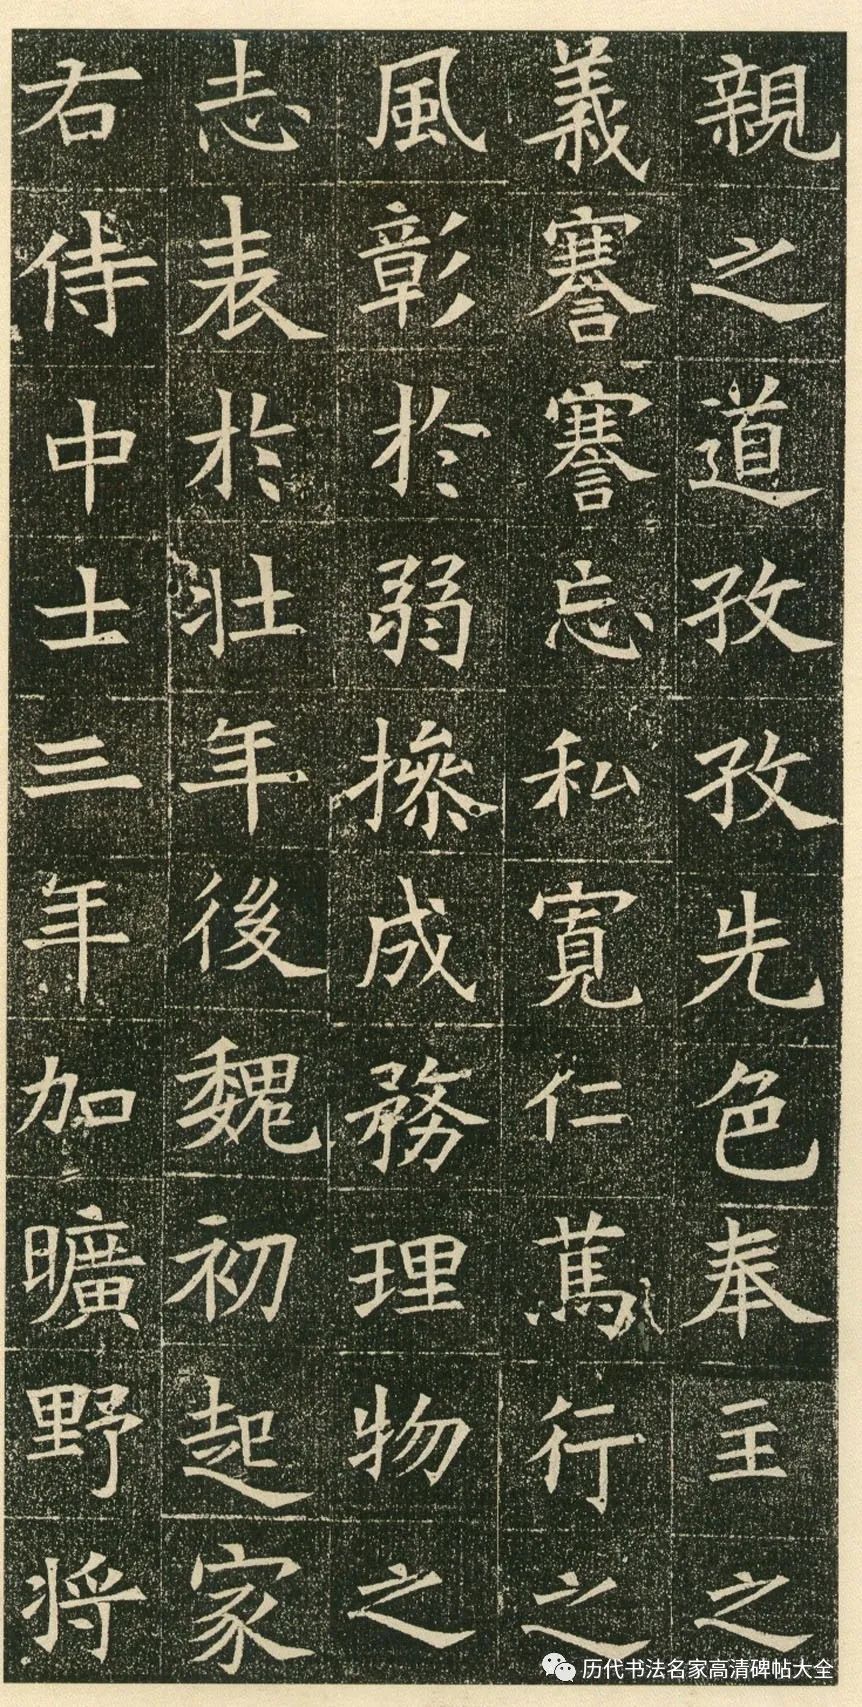 親之道孜孜先色奉主之
義謇謇忘私寬仁篤行之
風彰於弱操成務理物之
志表於壯年後魏初起家
右侍中士三年加曠野将
历代书法名家高清碑帖大全